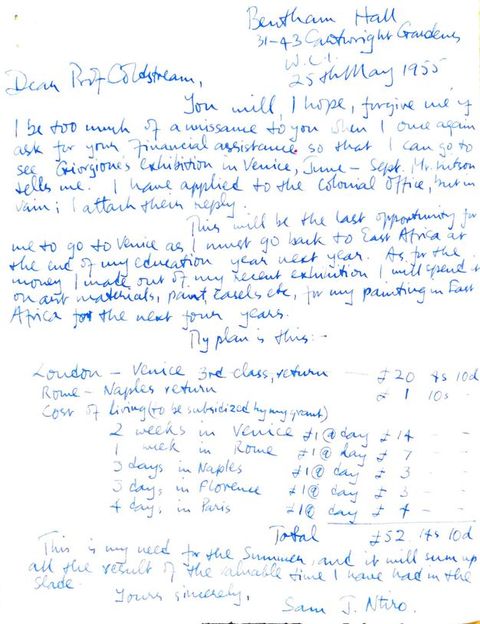 Bentham Hall
31-43 Cartwright Gardens
W.C.1.
25th May 1955
Dear Prof Coldstream,
You will, I hope, forgive me if
I be too much of a nuissance to you when I once again
ask for your financial assistance so that I can go to
see Giorgione's exhibition in Venice, June - Sept. Mr.
tells me. I have applied to the Colonial Office, but in
vain; I attach their reply.
This will be the last opportunity for
me to go to Venice as I must go back to East Africa at
the end of my education year next year. As for the
money I made out of my recent exhibition I will spend it
on art materials, paint, easels etc, for my painting in East
Africa for the next four years.
My plan is this:-
London - Venice 3rd class, return — £20 4s 10d
Rome - Naples return £ 1 10s -
Cost of living (to be subsidized by my grant)
2 weeks in Venice £1 @ day £ 14 - -
1 week in Rome £1 @ day £ 7 - -
3 days in Naples £1 @ day £ 3 - -
3 days in Florence £1 @ day £ 3 - -
4 days in Paris £1 @ day £ 4 - -
Total £52. 14s 10d
This is my need for the Summer, and it will sum up
all the result of the valuable time I have had in the
Slade.
Yours sincerely,
Sam J. Ntiro.